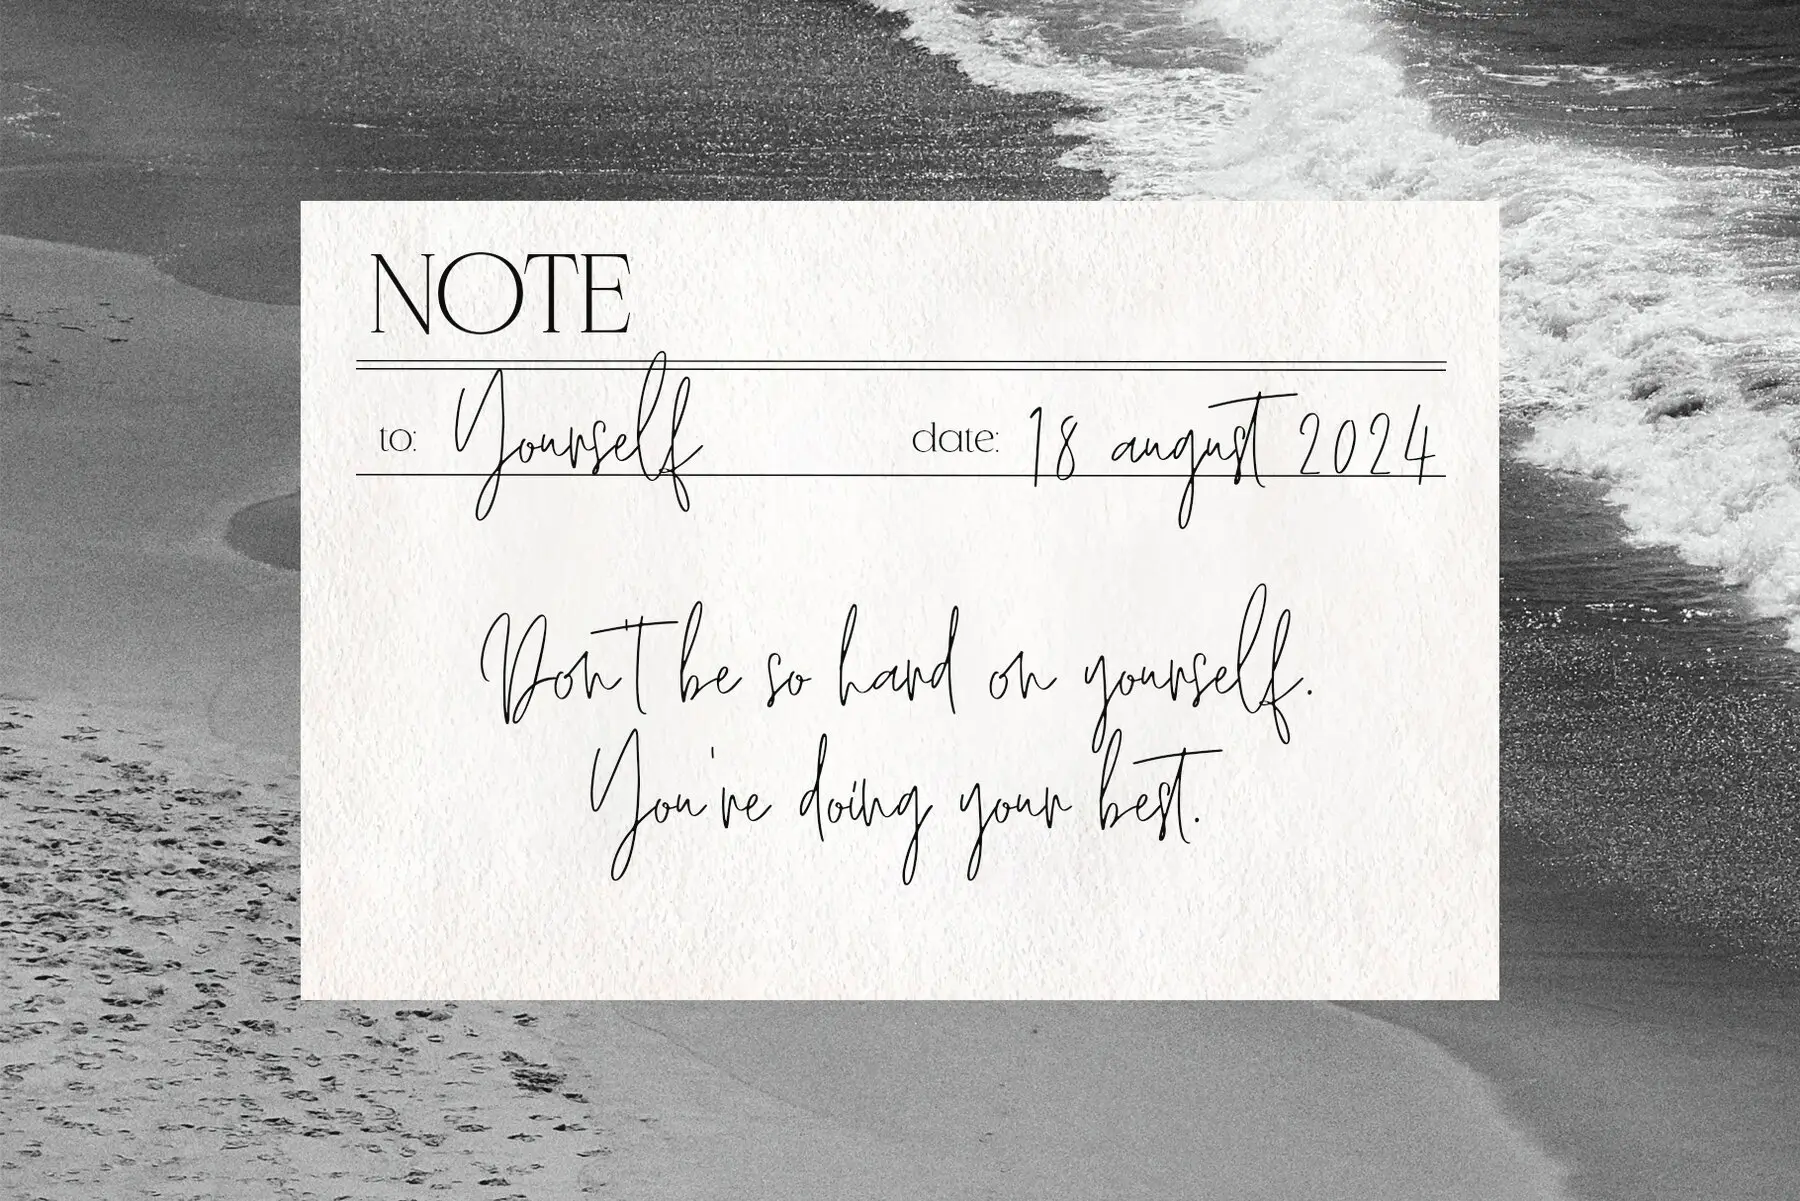 NOTE
to: Yourself date: 18 august 2024
Don't be so hard on yourself.
You're doing your best.